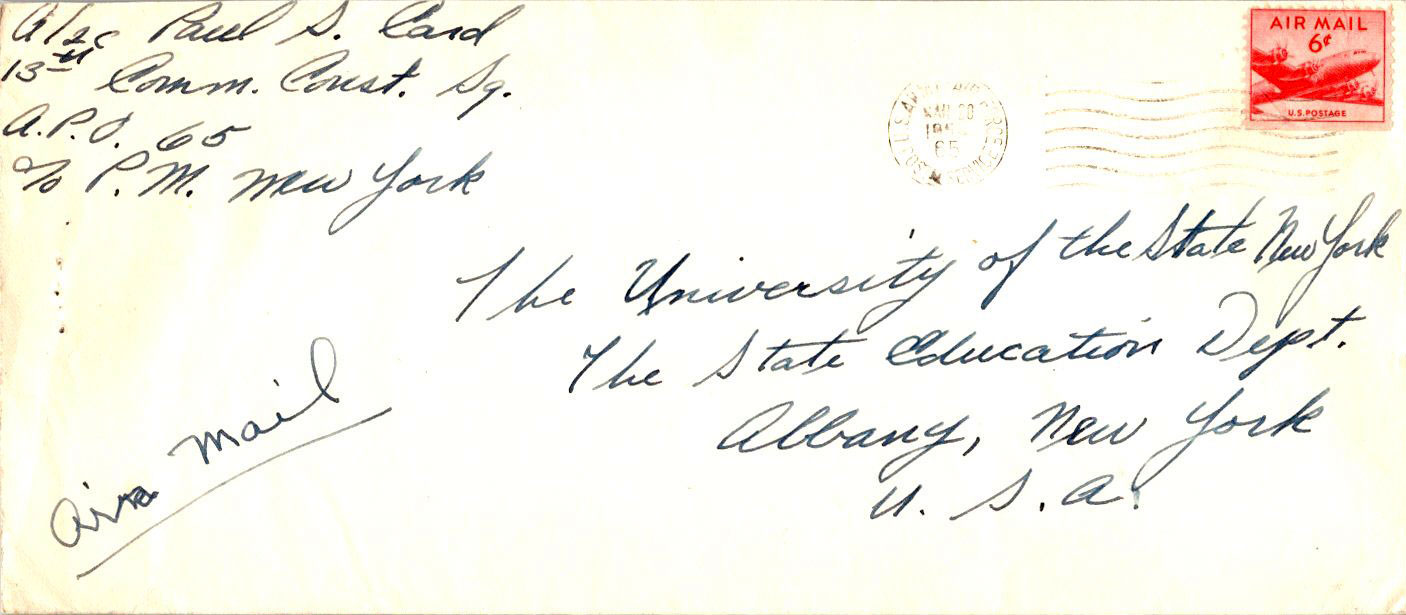 A/2c Paul S. Card
13th Comm. Const. Sq.
A.P.O. 65
c/o P.M. New York
AIR MAIL
6¢
U.S. POSTAGE
65
The University of the State New York
The State Education Dept.
Albany, New York
U. S. A.
Air Mail